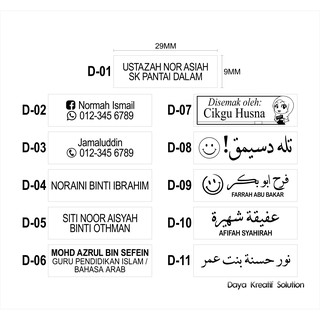 29MM
D-01
USTAZAH NOR ASIAH
SK PANTAI DALAM
9MM
D-02
Normah Ismail
012-345 6789
D-07
Disemak oleh:
Cikgu Husna
D-03
Jamaluddin
012-345 6789
D-08
تله دسيمق!
D-04
NORAINI BINTI IBRAHIM
D-09
فرح ابو بكر
FARRAH ABU BAKAR
D-05
SITI NOOR AISYAH
BINTI OTHMAN
D-10
عفيقة شهيرة
AFIFAH SYAHIRAH
D-06
MOHD AZRUL BIN SEFEIN
GURU PENDIDIKAN ISLAM /
BAHASA ARAB
D-11
نور حسنة بنت عمر
Daya Kreatif Solution